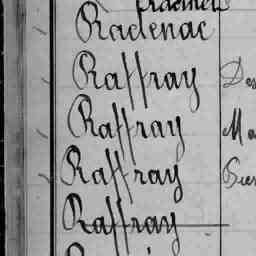 Radenac
Raffray
Raffray
Raffray
Raffray